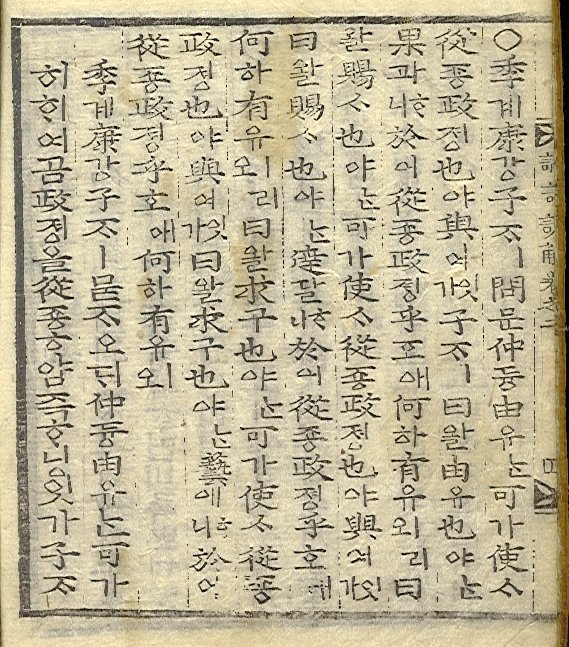 ○季계康강子ᄌᆞㅣ問문仲듕由유ᄂᆞᆫ可가使ᄉᆞ
從죵政졍也야與여잇가子ᄌᆞㅣ曰왈由유也야ᄂᆞᆫ
果과ᄒᆞ니於어從죵政졍乎호애何하有유리오曰
왈賜ᄉᆞ也야ᄂᆞᆫ可가使ᄉᆞ從죵政졍也야與여잇가
曰왈賜ᄉᆞ也야ᄂᆞᆫ達달ᄒᆞ니於어從죵政졍乎호애
何하有유리오曰왈求구也야ᄂᆞᆫ可가使ᄉᆞ從죵
政졍也야與여잇가曰왈求구也야ᄂᆞᆫ藝예ᄒᆞ니於어
從죵政졍乎호애何하有유리오
季계康강子ᄌᆞㅣ묻ᄌᆞ오ᄃᆡ仲듕由유ᄂᆞᆫ可가
히ᄒᆞ여곰政졍을從죵ᄒᆞ암즉ᄒᆞ니잇가子ᄌᆞ